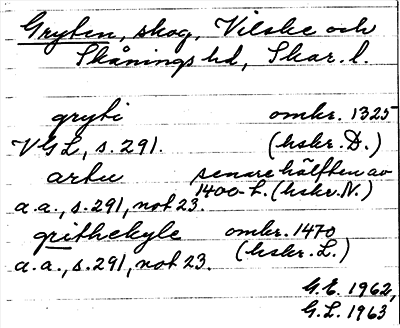 Gryten, skog, Vilske och
Skånings hd, Skar. l.
gryti omkr. 1325
VGL, s. 291. (hskr. D.)
artu senare hälften av
1400-t. (hskr. N.)
a.a., s. 291, not 23.
grithekyle omkr. 1470
a.a., s. 291, not 23. (hskr. L.)
G.E. 1962,
G.L. 1963